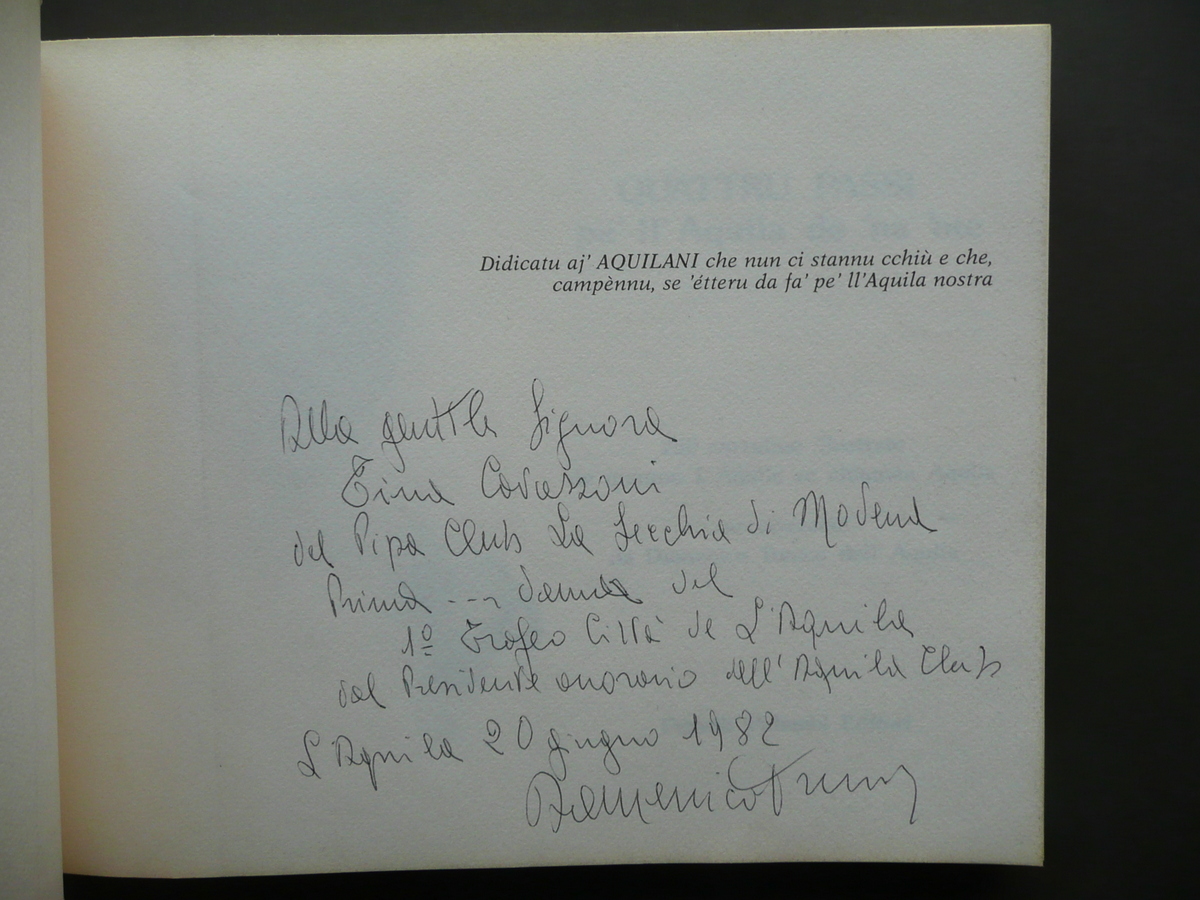 QUATTRU PASSI
pe' ll'Aquila
Didicatu aj' AQUILANI che nun ci stannu cchiù e che,
campènnu, se 'étteru da fa' pe' ll'Aquila nostra
Alla gentile Signora
Tina Cavazzoni
del Pipa Club La Secchia di Modena
Prima --- dama del
1º Trofeo Città de L'Aquila
dal Presidente onorario dell'Aquila Club
L'Aquila 20 giugno 1982
Domenico